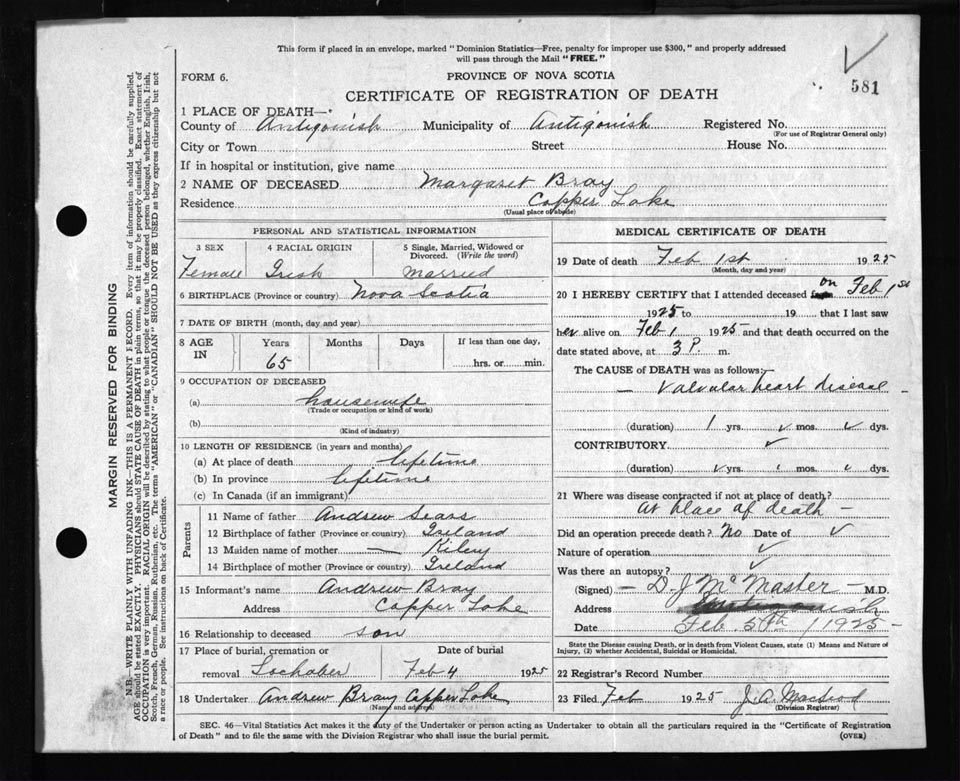 This form if placed in an envelope, marked "Dominion Statistics—Free, penalty for improper use $300," and properly addressed
will pass through the Mail "FREE."
581
FORM 6.
PROVINCE OF NOVA SCOTIA
CERTIFICATE OF REGISTRATION OF DEATH
1 PLACE OF DEATH—
County of Antigonish Municipality of Antigonish Registered No.
(For use of Registrar General only)
City or Town Street House No.
If in hospital or institution, give name
2 NAME OF DECEASED Margaret Bray
Residence Copper Lake
(Usual place of abode)
PERSONAL AND STATISTICAL INFORMATION
3 SEX 4 RACIAL ORIGIN 5 Single, Married, Widowed or
Divorced. (Write the word)
Female Irish Married
6 BIRTHPLACE (Province or country) Nova Scotia
7 DATE OF BIRTH (month, day and year)
8 AGE IN Years Months Days If less than one day,
65 hrs. or min.
9 OCCUPATION OF DECEASED
(a) housewife
(Trade or occupation or kind of work)
(b)
(Kind of industry)
10 LENGTH OF RESIDENCE (in years and months)
(a) At place of death lifetime
(b) In province lifetime
(c) In Canada (if an immigrant)
Parents
11 Name of father Andrew Sears
12 Birthplace of father (Province or country) Ireland
13 Maiden name of mother — Kiley
14 Birthplace of mother (Province or country) Ireland
15 Informant's name Andrew Bray
Address Copper Lake
16 Relationship to deceased son
17 Place of burial, cremation or Date of burial
removal Lochaber Feb 4 1925
18 Undertaker Andrew Bray Copper Lake
(Name and address)
MEDICAL CERTIFICATE OF DEATH
19 Date of death Feb 1st 1925
(Month, day and year)
20 I HEREBY CERTIFY that I attended deceased on Feb 1st
1925 to 19 that I last saw
her alive on Feb 1 1925 and that death occurred on
date stated above, at 3 P. m.
The CAUSE of DEATH was as follows:—
— Valvular heart disease —
(duration) 1 yrs. ✓ mos. ✓ dys.
CONTRIBUTORY ✓
(duration) ✓ yrs. ✓ mos. ✓ dys.
21 Where was disease contracted if not at place of death?
At place of death —
Did an operation precede death? No Date of ✓
Nature of operation ✓
Was there an autopsy?
(Signed) — D. J McMaster — M.D.
Address Antigonish
Date Feb 5th 1925 -
State the Disease causing Death, or in death from Violent Causes, state (1) Means and Nature of
Injury, (2) whether Accidental, Suicidal or Homicidal.
22 Registrar's Record Number
23 Filed Feb 1925 J. A. Macleod
(Division Registrar)
SEC. 46—Vital Statistics Act makes it the duty of the Undertaker or person acting as Undertaker to obtain all the particulars required in the "Certificate of Registration
of Death" and to file the same with the Division Registrar who shall issue the burial permit. (OVER)
MARGIN RESERVED FOR BINDING
N.B.—WRITE PLAINLY WITH UNFADING INK—THIS IS A PERMANENT RECORD. Every item of information should be carefully supplied.
AGE should be stated EXACTLY. PHYSICIANS should STATE CAUSE OF DEATH in plain terms, so that it may be properly classified. Exact statement of
OCCUPATION is very important. RACIAL ORIGIN will be described by stating to what people or tongue the deceased person belonged, whether English, Irish,
Scotch, French, German, Russian, Ruthenian, etc. The terms "AMERICAN" or "CANADIAN" SHOULD NOT BE USED as they express citizenship but not
a race or people. See instructions on back of Certificate.